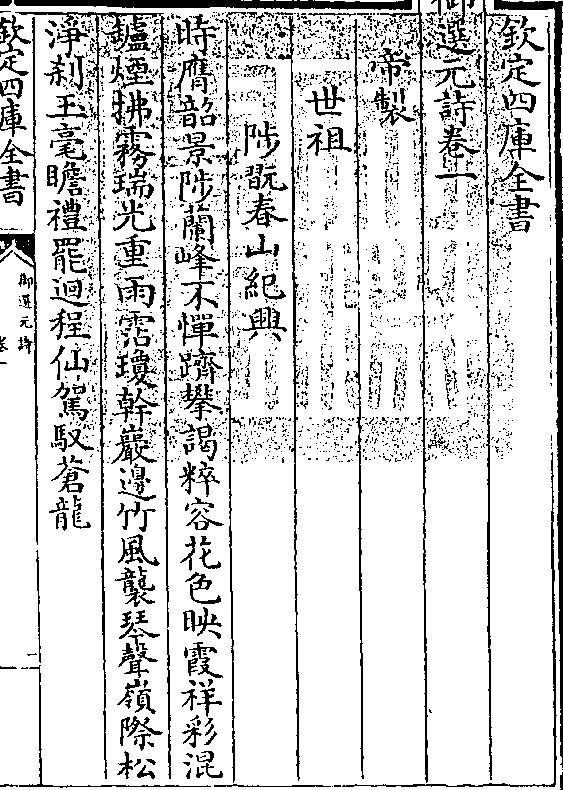 欽定四庫全書
御選元詩卷一
帝製
世祖
陟翫春山紀興
時膺韶景陟蘭峰不憚躋攀謁粹容花色映霞祥彩混
鑪煙拂霧瑞光重雨霑瓊幹巖邊竹風襲琴聲嶺際松
淨刹玉毫瞻禮罷迴程仙駕馭蒼龍
欽定四庫全書
御選元詩
卷一
一